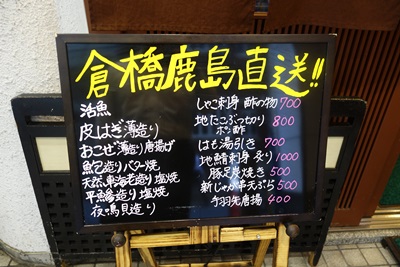 倉橋鹿島直送!!
活魚
皮はぎ薄造り
おこぜ薄造り唐揚げ
造りバター焼
天然車海老造り塩焼
平造り塩焼
夜鳴貝造り
しゃこ刺身 酢の物 700
地たこぶつ切り 800
ポン酢
はも湯引き 700
地鯖刺身 炙り 1000
豚足炭焼き 500
新じゃが串天ぷら 500
手羽先唐揚 400